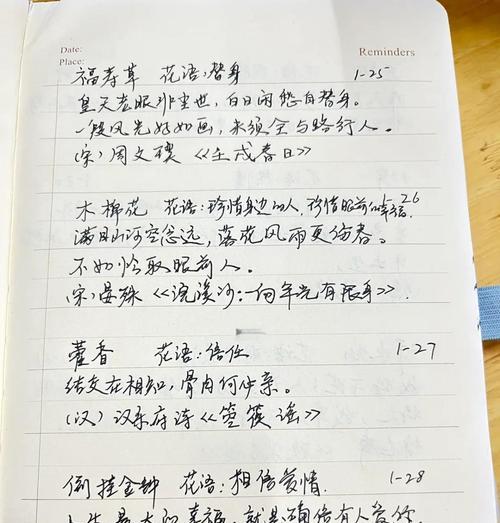 Date:
Place:
Reminders
福寿草 花语:替身 1-25
皇天老眼非尘世,白日闲愁自替身。
一段风光好如画,未须全与路行人。
(宋)周文璞《壬戌春日》
木棉花 花语:珍惜身边的人,珍惜眼前的幸福 26
满目山河空念远,落花风雨更伤春。
不如怜取眼前人。
(宋)晏殊《浣溪沙:一向年光有限身》
藿香 花语:信任 1-27
结交在相知,骨肉何必亲。
(汉)汉乐府诗《箜篌谣》
倒挂金钟 花语:相信爱情 1-28
人生最大的幸福,就是确信有人爱你